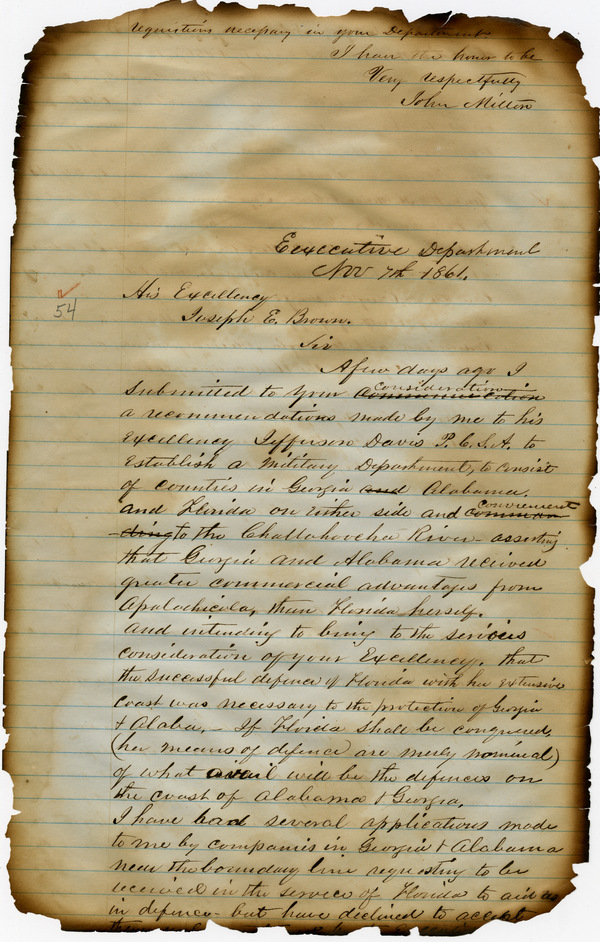 requisitions necessary in your Department
I have the honor to be
Very respectfully
John Milton
Executive Department
Nov 7th 1861.
54
His Excellency
Joseph E. Brown.
Sir
A few days ago I
consideration
submitted to your communication
a recommendations made by me to his
Excellency Jefferson Davis P.C.S.A. to
Establish a Military Department, to consist
of counties in Georgia and Alabama.
convenient
and Florida on either side and comman
ding to the Chattahoocha River - asserting
that Georgia and Alabama received
greater commercial advantages from
Apalachicola, than Florida herself.
And intending to bring to the serious
consideration of your Excellency. that
the successful defence of Florida with her extensive
coast was necessary to the protection of Georgia
& Alaba, - If Florida shall be conquered,
(her means of defence are merely nominal)
of what avail will be the defences on
the coast of Alabama & Georgia.
I have had several applications made
to me by companies in Georgia & Alabama
near the boundary line requesting to be
received in the service of Florida to aid as
in defence - but have declined to accept